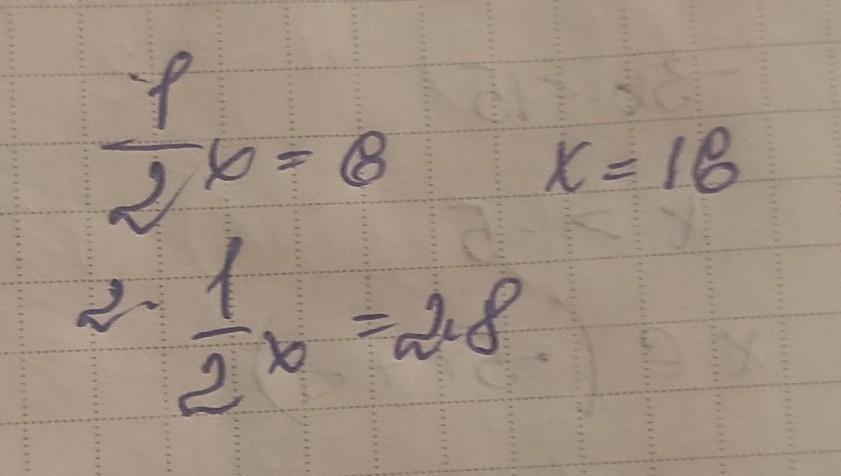 1/2 x = 8 x = 16
2· 1/2 x = 2·8